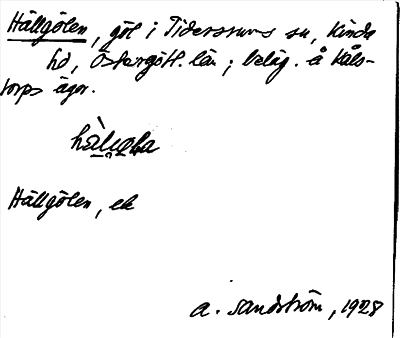 Hällgölen, göl i Tidersrums sn, Kinda
hd, Östergötl. län; beläg. å Håls-
torps ägor.
Hällgölen, ek
A. Sandström, 1928